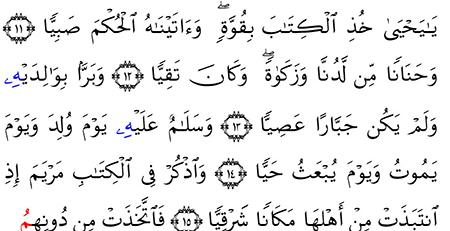 يَـٰيَحْيَىٰ خُذِ ٱلْكِتَـٰبَ بِقُوَّةٍۢ ۖ وَءَاتَيْنَـٰهُ ٱلْحُكْمَ صَبِيًّا ۝١١
وَحَنَانًا مِّن لَّدُنَّا وَزَكَوٰةً ۖ وَكَانَ تَقِيًّا ۝١٢ وَبَرًّۢا بِوَٰلِدَيْهِۦ
وَلَمْ يَكُن جَبَّارًا عَصِيًّا ۝١٣ وَسَلَـٰمٌ عَلَيْهِۦ يَوْمَ وُلِدَ وَيَوْمَ
يَمُوتُ وَيَوْمَ يُبْعَثُ حَيًّا ۝١٤ وَٱذْكُرْ فِى ٱلْكِتَـٰبِ مَرْيَمَ إِذِ
ٱنتَبَذَتْ مِنْ أَهْلِهَا مَكَانًا شَرْقِيًّا ۝١٥ فَٱتَّخَذَتْ مِن دُونِهِمُ